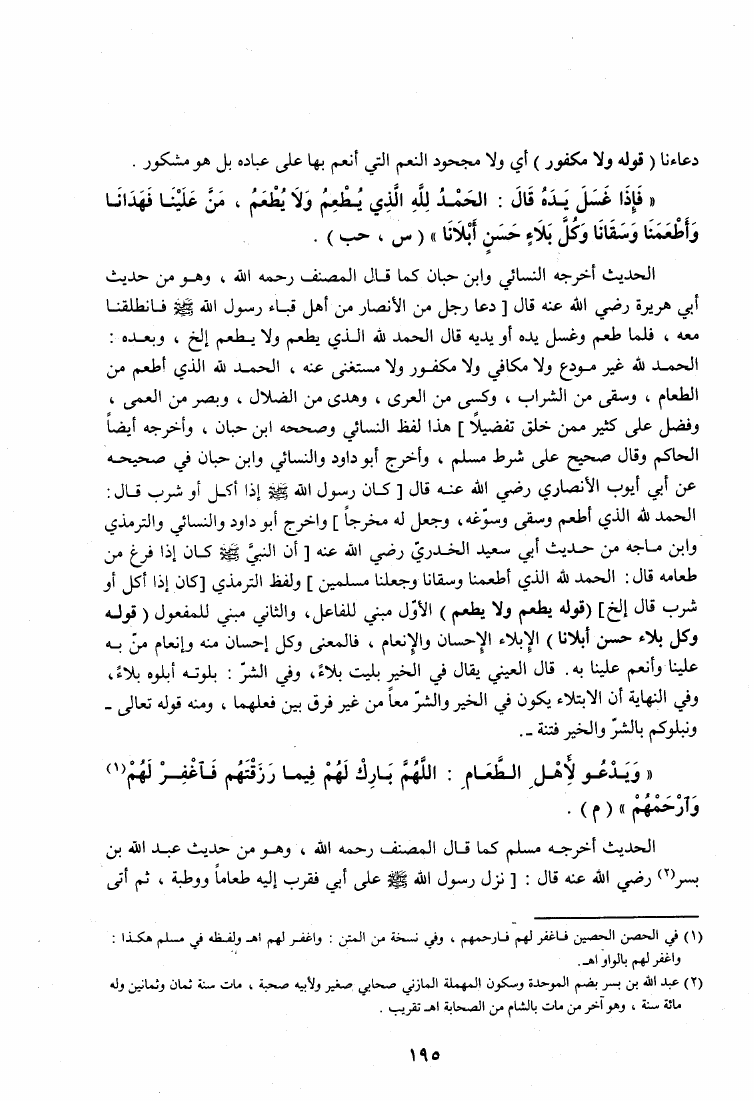 دعاءنا ( قوله ولا مكفور ) أي ولا مجحود النعم التي أنعم بها على عباده بل هو مشكور .
« فَإِذَا غَسَلَ يَدَهُ قَالَ : الحَمْدُ لِلَّهِ الَّذِي يُطْعِمُ وَلَا يُطْعَمُ ، مَنَّ عَلَيْنَا فَهَدَانَا
وَأَطْعَمَنَا وَسَقَانَا وَكُلَّ بَلَاءٍ حَسَنٍ أَبْلَانَا » ( س ، حب ) .
الحديث أخرجه النسائي وابن حبان كما قال المصنف رحمه الله ، وهو من حديث
أبي هريرة رضي الله عنه قال [ دعا رجل من الأنصار من أهل قباء رسول الله ﷺ فانطلقنا
معه ، فلما طعم وغسل يده أو يديه قال الحمد لله الذي يطعم ولا يطعم إلخ ، وبعده :
الحمد لله غير مودع ولا مكافي ولا مكفور ولا مستغنى عنه ، الحمد لله الذي أطعم من
الطعام ، وسقى من الشراب ، وكسى من العرى ، وهدى من الضلال ، وبصر من العمى ،
وفضل على كثير ممن خلق تفضيلاً ] هذا لفظ النسائي وصححه ابن حبان ، وأخرجه أيضاً
الحاكم وقال صحيح على شرط مسلم ، وأخرج أبو داود والنسائي وابن حبان في صحيحه
عن أبي أيوب الأنصاري رضي الله عنه قال [ كان رسول الله ﷺ إذا أكل أو شرب قال :
الحمد لله الذي أطعم وسقى وسوّغه، وجعل له مخرجاً ] واخرج أبو داود والنسائي والترمذي
وابن ماجه من حديث أبي سعيد الخدريّ رضي الله عنه [ أن النبيَّ ﷺ كان إذا فرغ من
طعامه قال: الحمد لله الذي أطعمنا وسقانا وجعلنا مسلمين ] ولفظ الترمذي [كان إذا أكل أو
شرب قال إلخ] (قوله يطعم ولا يطعم ) الأوّل مبني للفاعل، والثاني مبني للمفعول ( قوله
وكل بلاء حسن أبلانا ) الإبلاء الإحسان والإنعام ، فالمعنى وكل إحسان منه وإنعام منّ به
علينا وأنعم علينا به. قال العيني يقال في الخير بليت بلاءً، وفي الشرّ : بلوته أبلوه بلاءً،
وفي النهاية أن الابتلاء يكون في الخير والشرّ معاً من غير فرق بين فعلهما ، ومنه قوله تعالى ـ
ونبلوكم بالشرّ والخير فتنة ـ.
« وَيَدْعُو لأَهْلِ الطَّعَامِ : اللَّهُمَّ بَارِكْ لَهُمْ فِيمَا رَزَقْتَهُم فَآغْفِرْ لَهُمْ(١)
وَآرْحَمْهُمْ » ( م ) .
الحديث أخرجه مسلم كما قال المصنف رحمه الله ، وهو من حديث عبد الله بن
بسر(٢) رضي الله عنه قال : [ نزل رسول الله ﷺ على أبي فقرب إليه طعاماً ووطبة ، ثم أتى
(١) في الحصن الحصين فاغفر لهم فارحمهم ، وفي نسخة من المتن : واغفر لهم اهـ ولفظه في مسلم هكذا :
واغفر لهم بالواو اهـ.
(٢) عبد الله بن بسر بضم الموحدة وسكون المهملة المازني صحابي صغير ولأبيه صحبة ، مات سنة ثمان وثمانين وله
مائة سنة ، وهو آخر من مات بالشام من الصحابة اهـ تقريب .
١٩٥